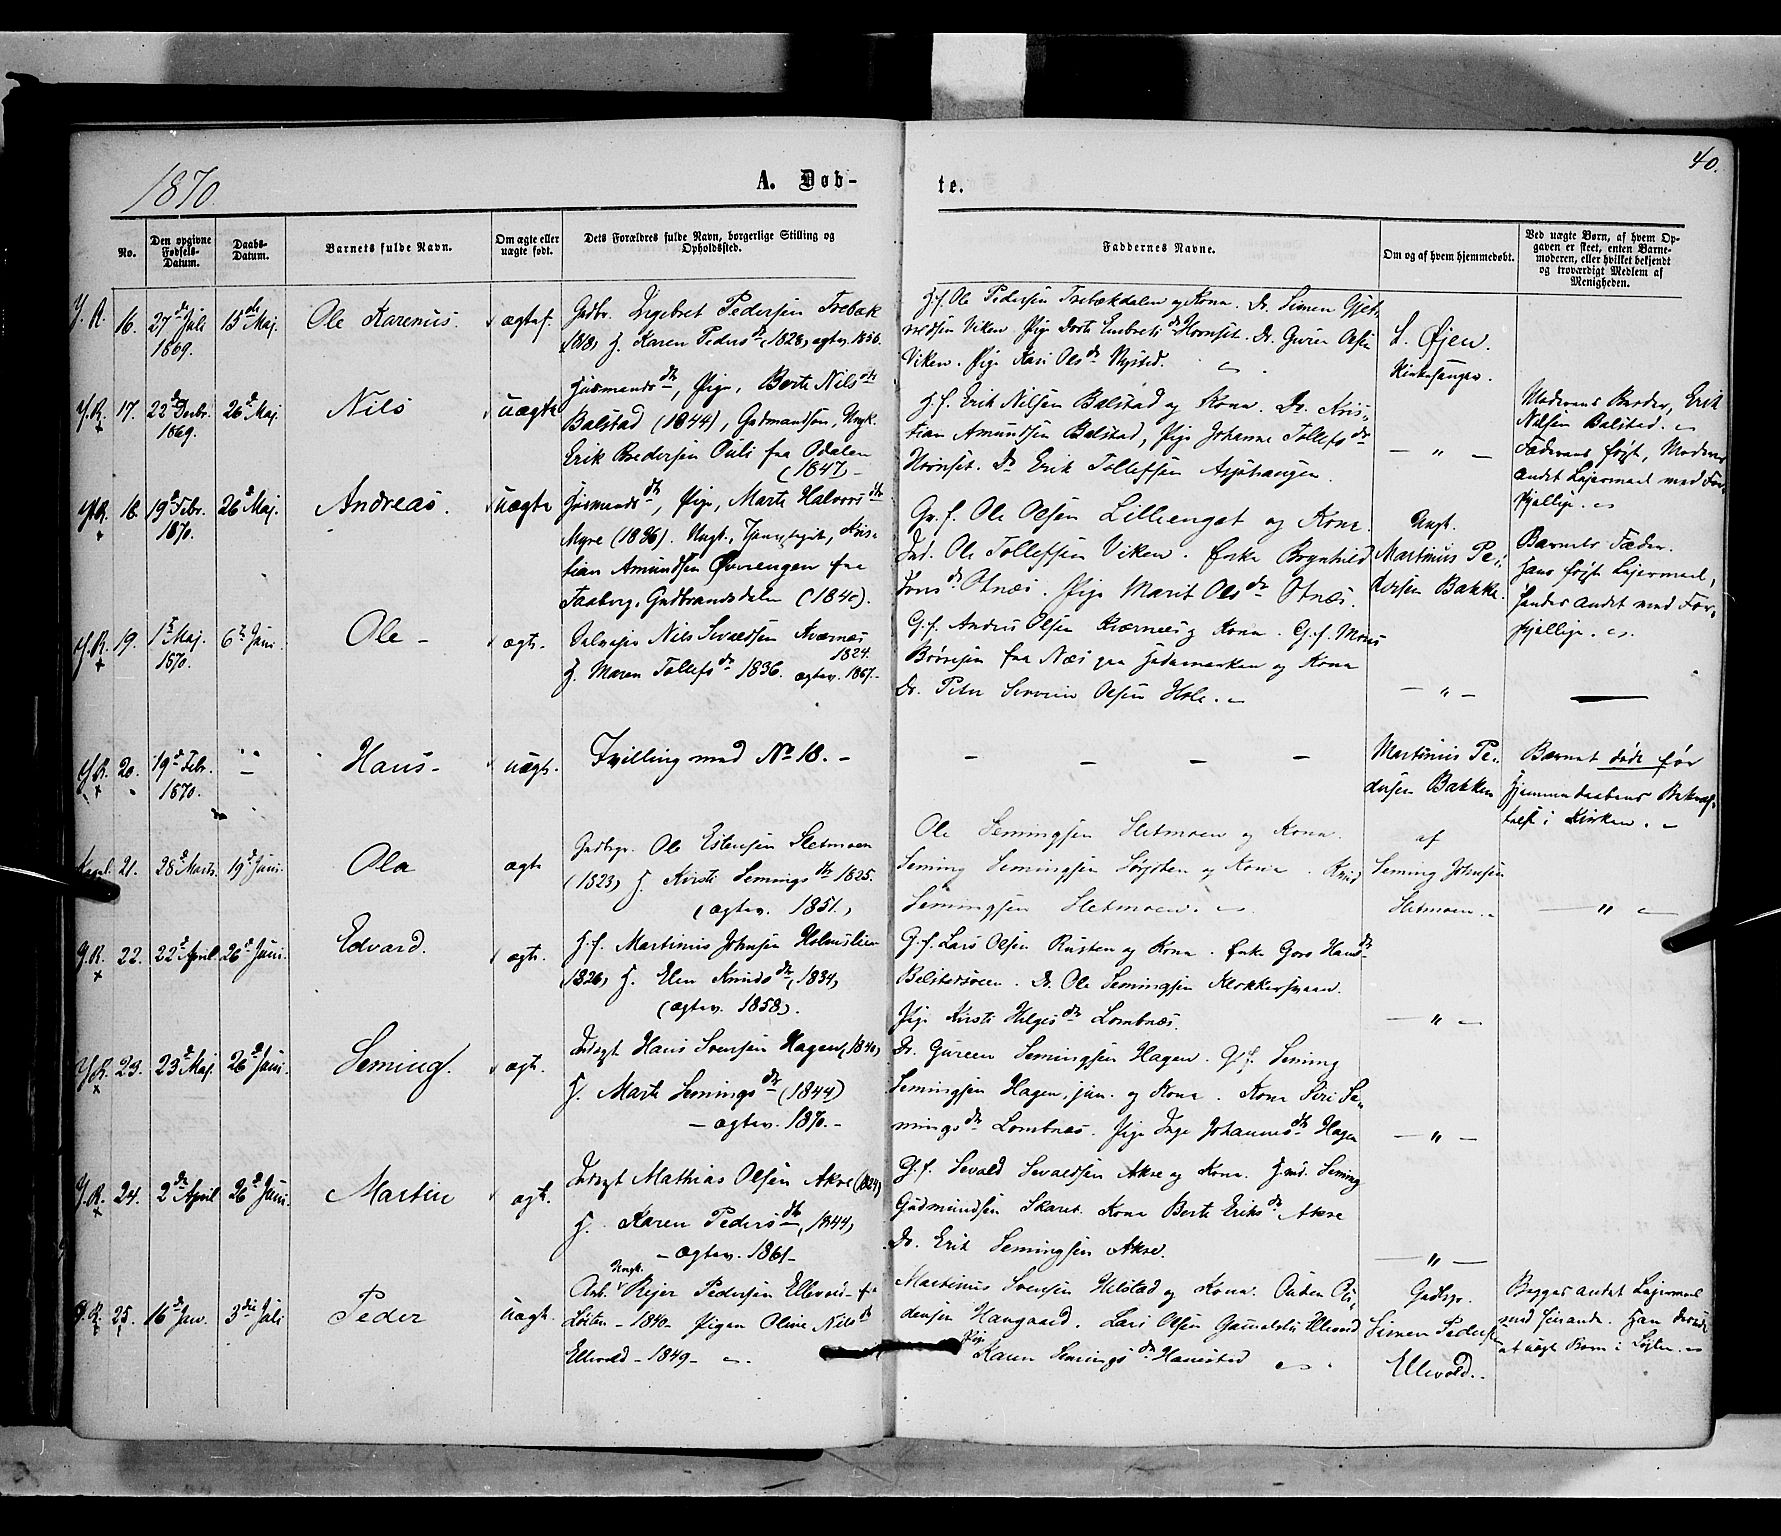 1870.
A. Døb-
te.
40.
No.
Den opgivne Fødsels-Datum.
Daabs-Datum.
Barnets fulde Navn.
Om ægte eller uægte født.
Dets Forældres fulde Navn, borgerlige Stilling og Opholdssted.
Faddernes Navne.
Om og af hvem hjemmedøbt.
Ved uægte Børn, af hvem Op-
gaven er skeet, enten Barne-
moderen, eller hvilket bekjendt
og troværdigt Medlem af
Menigheden.
Y. R. 16. 27de Juli 1869. 15de Maj. Ole Karenus. ægtef.
Pedersen Trøbæk
1818, H. Karen Pedersdtr (1828) ægtev. 1856.
G.f. Ole Pedersen Trøbækdalen og Kona. Dr. Simen
Viken. Pige Dorte Embretsdtr Hornset. Dr. Olsen
Viken. Pige Kari Olsdtr Nysted.
L. Øjen.
Kirkesanger.
Y.R. 17. 22de Decbr. 1869. 26de Maj. Nils uægte
Husmandsdtr, Pige, Berte Nilsdtr
Balstad (1844), Gudmandsøn, Ungk.
Erik Pedersen fra Odalen
(1847) -
G.f. Erik Nilsen Balstad og Kona. Dr. Kris-
tian Amundsen Balstad, Pige Johanne Tollefsdtr
Hornset. Dr Erik Tollefsen
- " -
Moderens Broder, Erik
Nilsen Balstad.
Faderens første, Moderens
andet Lejermaal med For-
skjellige.
Y.R. 18. 19de Febr. 1870. 26de Maj. Andreas. uægte
Husmandsdtr, Pige, Marte Halvorsdtr
Myre (1836). Ungk., Kris-
tian Amundsen Øverengen fra
Faaberg, Gudbrandsdalen (1840).
Gr.f. Ole Olsen Lillienget og Kona.
Ind. Ole Tollefsen Viken. Enke Brynhild
Jonsdtr Otnæs. Pige Marit Olsdtr Otnæs.
Ungk.
Martinius Pe-
dersen Bakke.
Barnets Fader.
Hans første Lejermaal,
hendes andet med For-
skjellige.
Y.R. 19. 1ste Maj. 1870. 6te Juni. Ole - ægte.
Nils Sivaldsen Kværnæs
1824.
H. Maren Tollefsdtr 1836. ægtev. 1867.
G.f. Andres Olsen Kværnes og Kona. G.f. Mons
fra Næs paa Hedemarken og Kona
Dr. Peter Severin Olsen Hole.
- " -
Y.R. 20. 19de Febr. 1870. Hans - uægte.
Tvilling med No 18. -
Martinius Pe-
dersen Bakken
Barnet døde før
Hjemmedaabens Bekræf-
telse i Kirken.
21. 28de Marts. 19de Juni. Ola ægte
Gaardbr. Ole Estensen Sletmoen
(1823) H. Kirsti Semingsdtr 1825.
(ægtev. 1851.)
Ole Semingsen Sletmoen og Kona.
Seming Semingsen og Kona. Knud
Semingsen Sletmoen.
af
Seming Johnsen
Sletmoen.
- " -
Y.R. 22. 22de April 26de Juni. Edvard. ægte.
G.f. Martinius Johnsen Holmslien
1826, H. Elen Knudsdtr, (1834)
(ægtev. 1858).
G.f. Lars Olsen Rusten og Kona. Enke Goro Hansdtr
. Dr. Ole Semingsen
Pige Kirsti Helgesdtr Lombnæs.
- " -
Y.R. 23. 23de Maj. 26de Juni. Seming. ægte.
Inderst Hans Svensen Hagen (1840)
H. Marte Semingsdtr (1844)
- ægtev. 1870. -
Dr. Semingsen Hagen. G.f. Seming
Semingsen Hagen, jun. og Kona. Kona Siri Se-
mingsdtr Lombnæs. Pige Inge Johannesdtr Hagen
- " -
Y.R. 24. 2den April 26de Juni. Martin ægte.
Inderst Mathias Olsen Akre (1834)
H. Karen Pedersdtr (1844)
- ægtev. 1861 -
G.f. Sevald Sevaldsen Akre og Kona. Seming
Gudmundsen Skaret. Kona Berte Eriksdtr Akre
Dr. Erik Semingsen Akre.
- " -
Y.R. 25. 16de Jan. 3die Juli Peder uægte.
Ungk.
Arb. Rejer Pedersen Ellevold - fra
Løiten - 1840. Pigen Oline Nilsdtr
Ellevold - 1849 -
Martinus Svensen Helstad og Kona.
Haugaard. Lars Olsen Ellevold
Pige
Karen Semingsdtr Hanestad
Gaardbr.
Simen Pedersen
Ellevold.
Begges andet Lejermaal
med Han
et uægte Barn i Løiten.